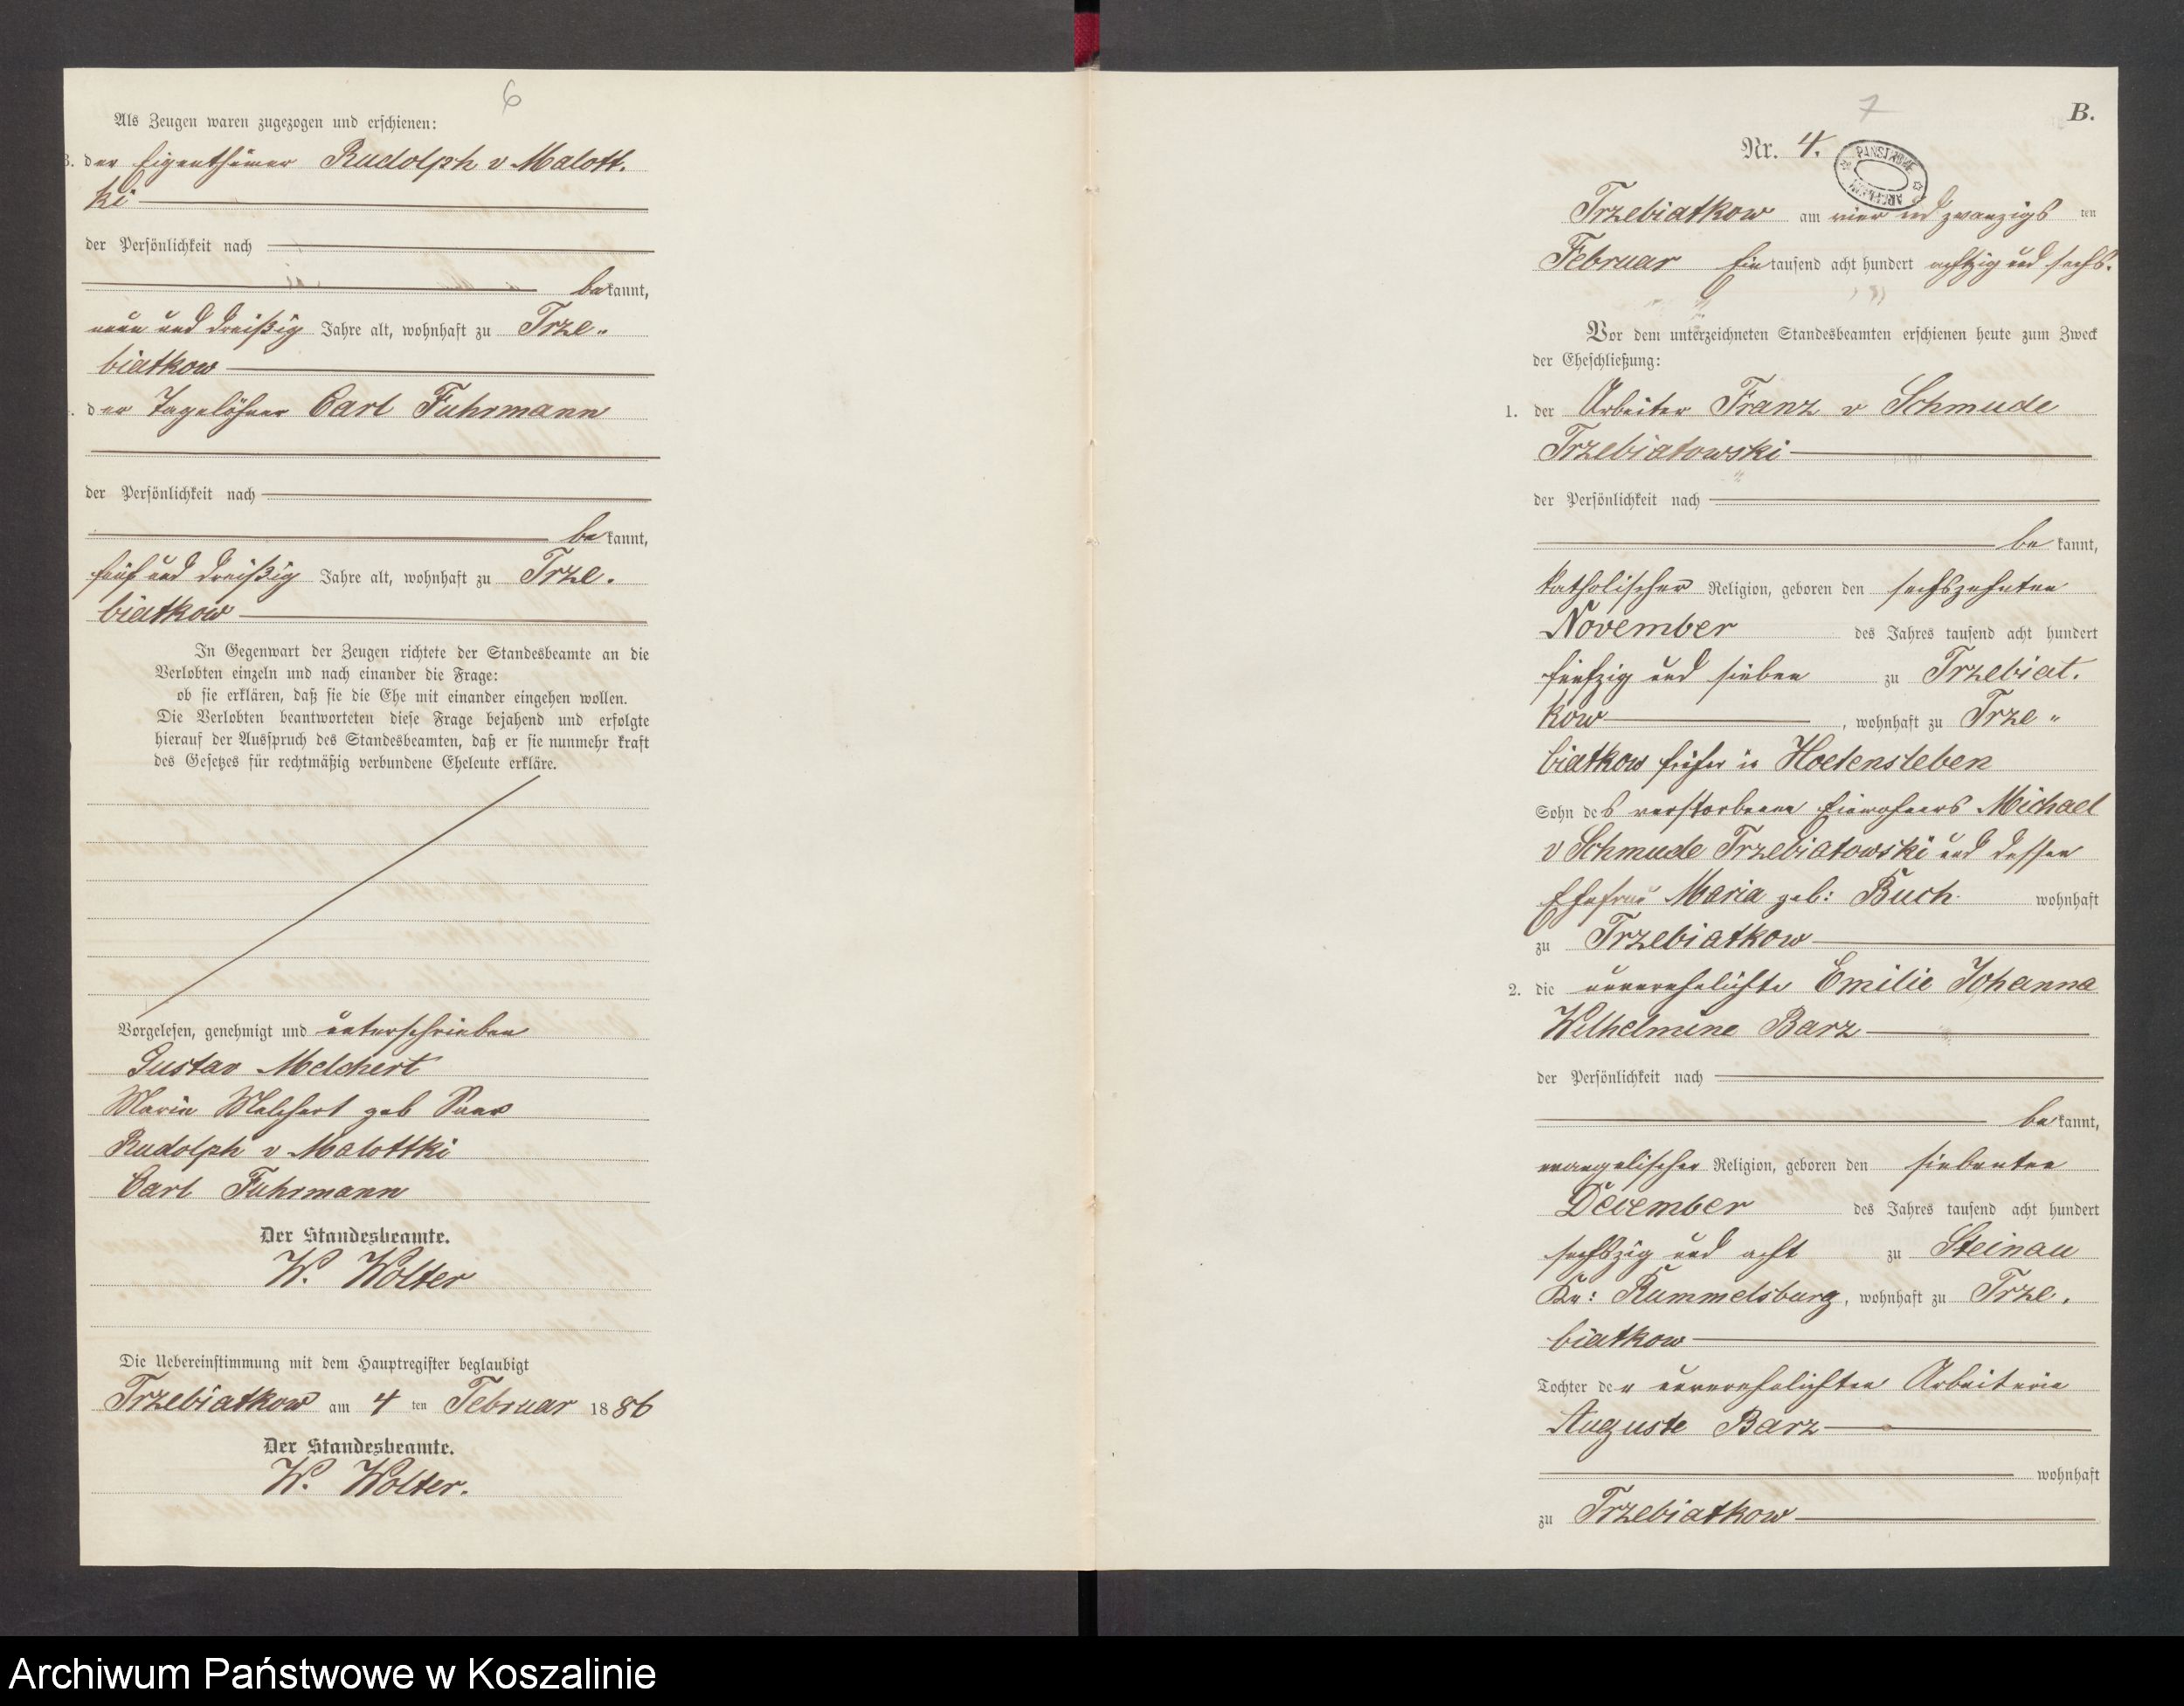 6
Als Zeugen waren zugezogen und erschienen:
3. der Eigenthümer Rudolph v Malott.
ki
der Persönlichkeit nach
bekannt,
neun und dreißig Jahre alt, wohnhaft zu Trze-
biatkow
der Tagelöhner Carl Fuhrmann
der Persönlichkeit nach
bekannt,
fünf und dreißig Jahre alt, wohnhaft zu Trze.
biatkow
In Gegenwart der Zeugen richtete der Standesbeamte an die
Verlobten einzeln und nach einander die Frage:
ob sie erklären, daß sie die Ehe mit einander eingehen wollen.
Die Verlobten beantworteten diese Frage bejahend und erfolgte
hierauf der Ausspruch des Standesbeamten, daß er sie nunmehr kraft
des Gesetzes für rechtmäßig verbundene Eheleute erkläre.
Vorgelesen, genehmigt und unterschrieben
Gustav Melchert
Maria Melchert geb
Rudolph v Malottki
Carl Fuhrmann
Der Standesbeamte.
W. Wolter
Die Uebereinstimmung mit dem Hauptregister beglaubigt
Trzebiatkow am 4 ten Februar 1886
Der Standesbeamte.
W. Wolter.
7
B.
Nr. 4.
PAŃSTWOWE ARCHIWUM
Trzebiatkow am vier und zwanzigs ten
Februar Ein tausend acht hundert achtzig und sechs.
Vor dem unterzeichneten Standesbeamten erschienen heute zum Zweck
der Eheschließung:
1. der Arbeiter Franz v Schmude
Trzebiatowski
der Persönlichkeit nach
be kannt,
katholischer Religion, geboren den sechszehnten
November des Jahres tausend acht hundert
fünfzig und sieben zu Trzebiat.
kow, wohnhaft zu Trze-
biatkow früher in Hoetensleben
Sohn des verstorbenen Einwohners Michael
v Schmude Trzebiatowski und dessen
Ehefrau Maria geb: Buch wohnhaft
zu Trzebiatkow
2. die unverehelichte Emilie Johanna
Wilhelmine Barz
der Persönlichkeit nach
bekannt,
evangelischer Religion, geboren den siebenten
December des Jahres tausend acht hundert
sechszig und acht zu Steinau
Kr: Rummelsburg, wohnhaft zu Trze.
biatkow
Tochter der unverehelichten Arbeiterin
Auguste Barz
wohnhaft
zu Trzebiatkow
Archiwum Państwowe w Koszalinie